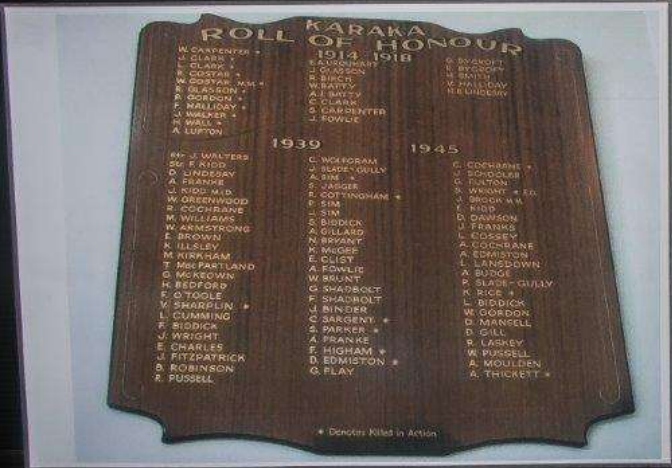 KARAKA
ROLL OF HONOUR
1914 - 1918
W. CARPENTER *
J. CLARK *
L. CLARK *
R. COSTAR *
W. COSTAR M.M. *
R. GLASSON *
P. GORDON *
F. HALLIDAY *
J. WALKER *
H. WALL *
A. LUPTON
E.A. URQUHART
J. GLASSON
R. BIRCH
W. BATTY
A.J. BATTY
C. CLARK
S. CARPENTER
J. FOWLIE
G. BYCROFT
R. BYCROFT
H. SMITH
V. HALLIDAY
H.B. LINDESAY
1939 1945
J. WALTERS
F. KIDD
D. LINDESAY
A. FRANKE
J. KIDD M.I.D.
W. GREENWOOD
R. COCHRANE
M. WILLIAMS
W. ARMSTRONG
E. BROWN
K. ILLSLEY
M. KIRKHAM
T. MacPARTLAND
G. McKEOWN
H. BEDFORD
F. O'TOOLE
V. SHARPLIN *
L. CUMMING
F. BIDDICK
J. WRIGHT
E. CHARLES
J. FITZPATRICK
B. ROBINSON
R. PUSSELL
C. WOLFGRAM
J. SLADE-GULLY
A. SIM *
S. JAGGER
R. COTTINGHAM *
P. SIM
J. SIM
S. BIDDICK
A. GILLARD
N. BRYANT
K. McGEE
E. CLIST
A. FOWLIE
W. BRUNT
G. SHADBOLT
F. SHADBOLT
J. BINDER
C. SARGENT *
S. PARKER *
A. FRANKE
F. HIGHAM *
D. EDMISTON *
G. FLAY
C. COCHRANE *
J. SCHOOLER
G. FULTON
S. WRIGHT *
J. BROCK M.M.
E. KIDD
D. DAWSON
J. FRANKS
L. COSSEY
A. COCHRANE
A. EDMISTON
L. LANSDOWN
A. BUDGE
P. SLADE-GULLY
K. RICE *
L. BIDDICK
W. GORDON
D. MANSELL
D. GILL
R. LASKEY
W. PUSSELL
A. MOULDEN
A. THICKETT *
* Denotes Killed in Action